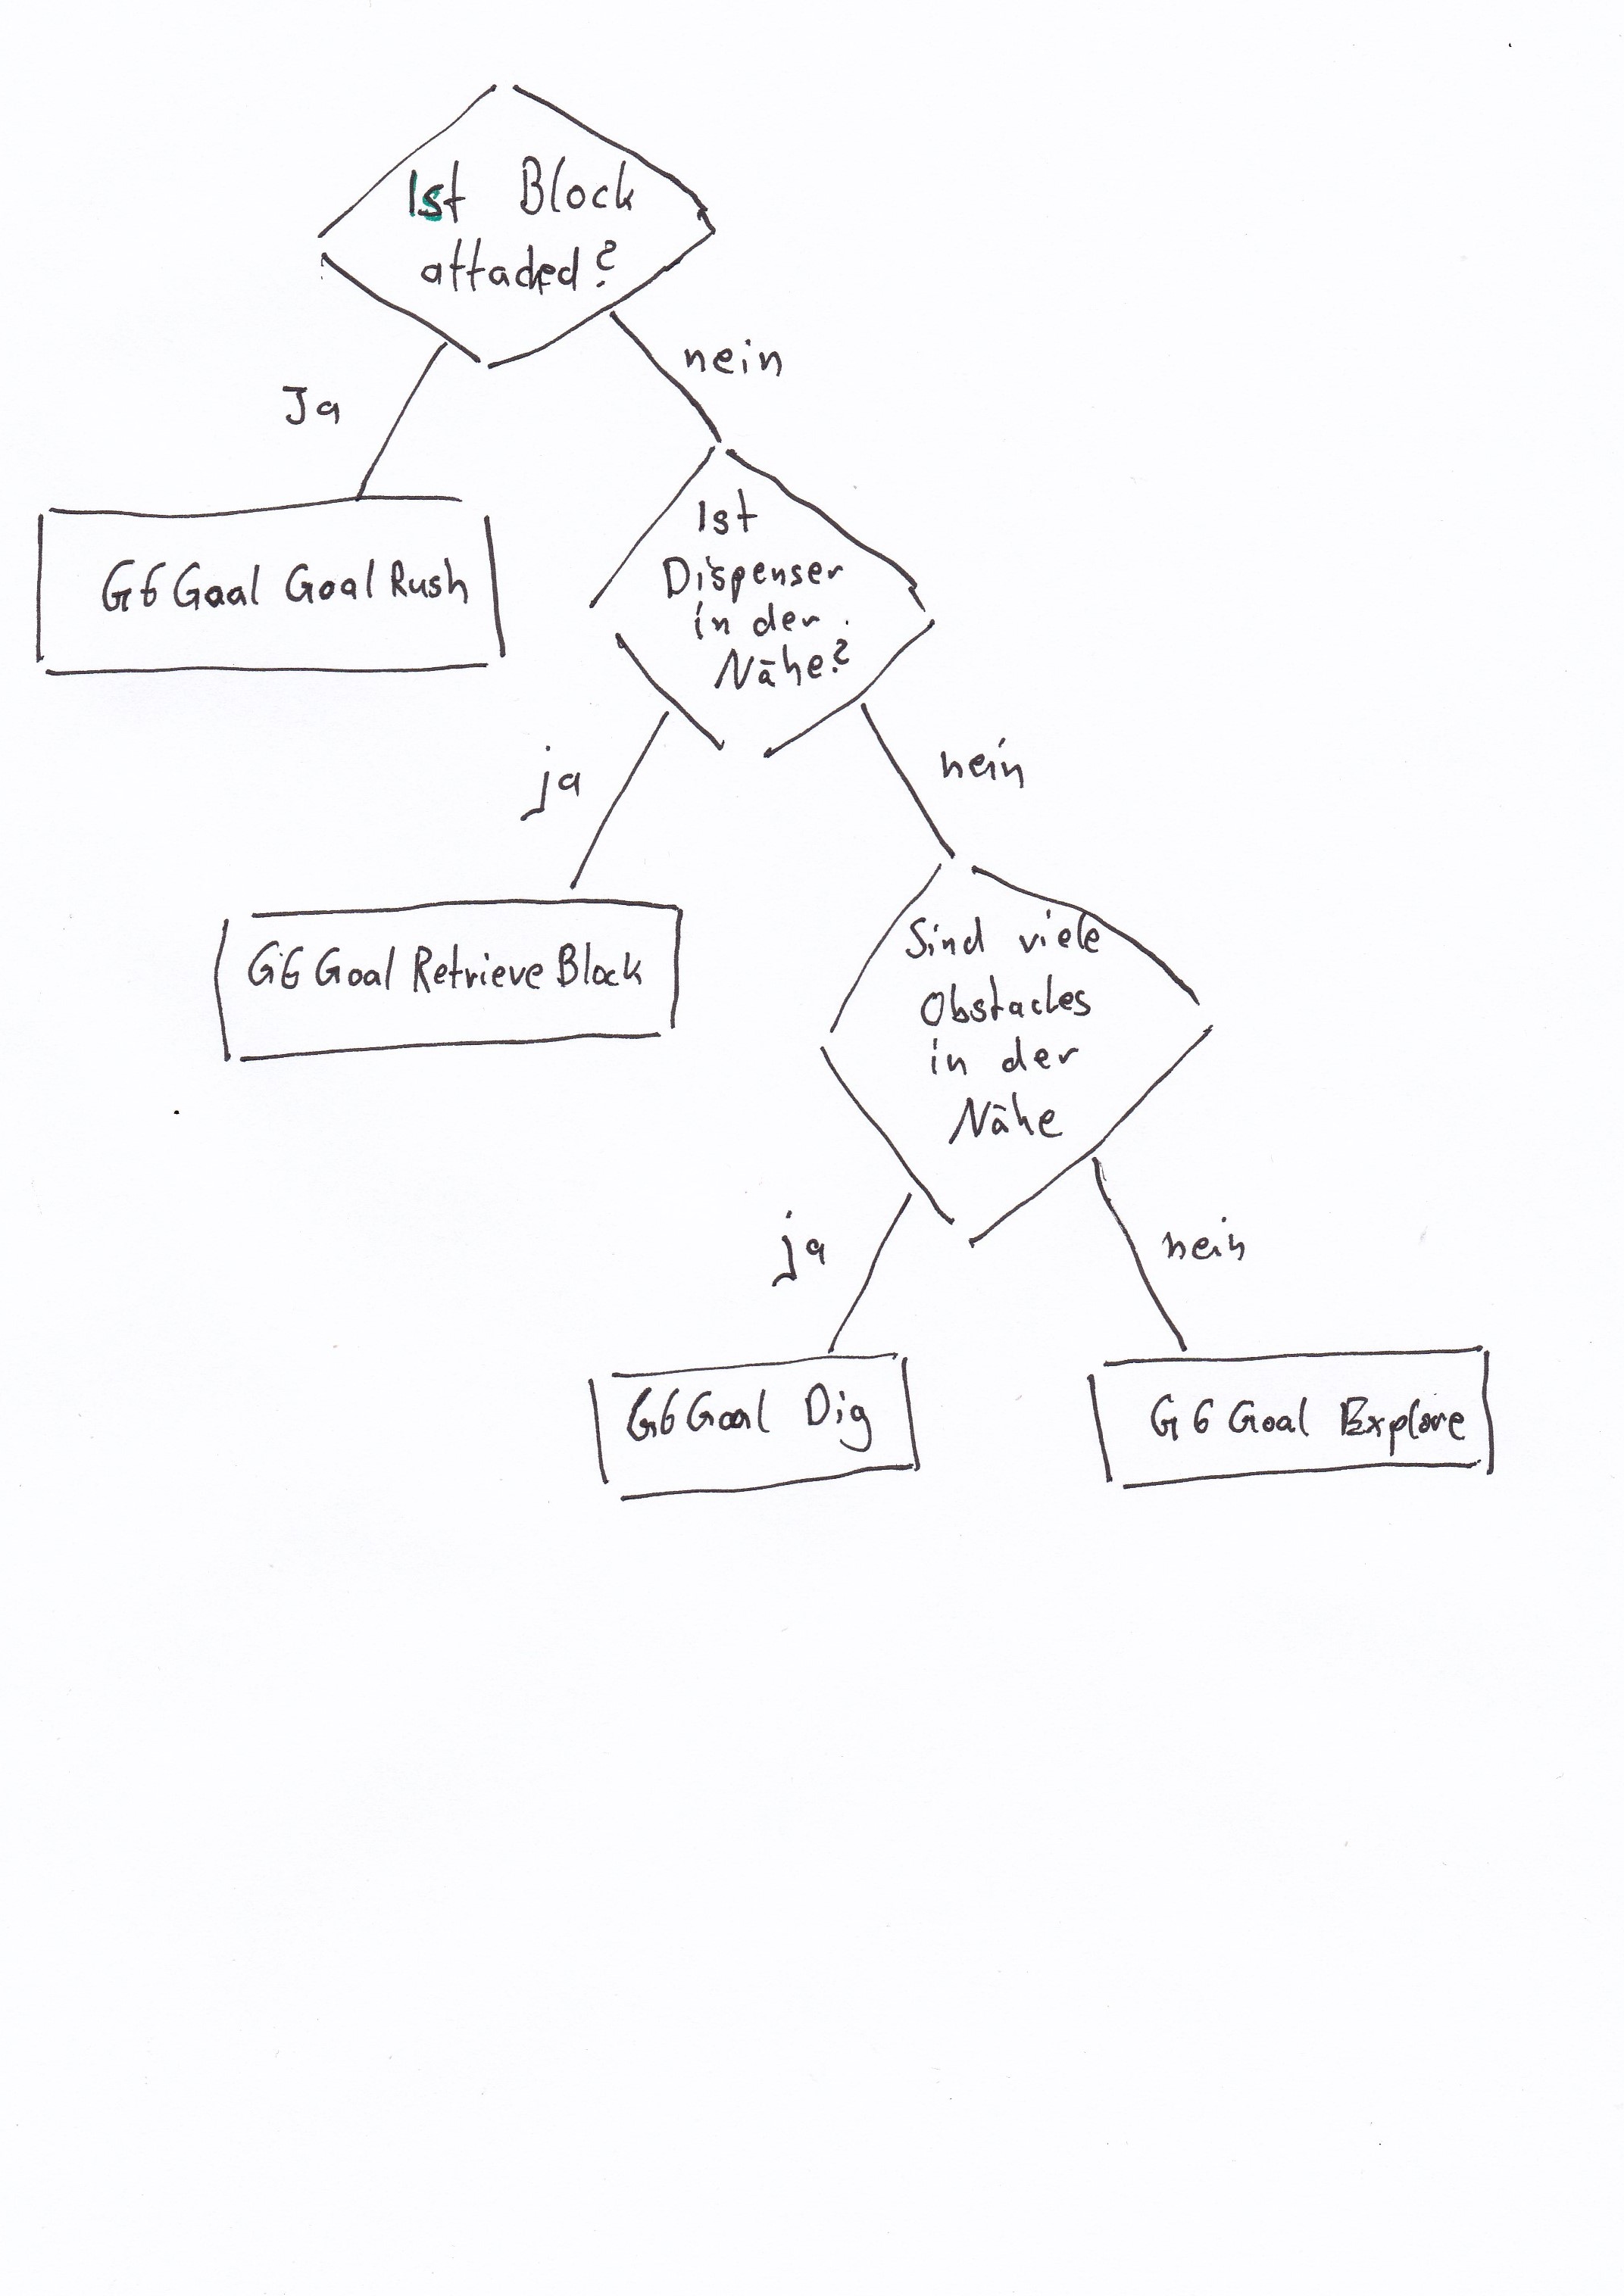 Ist Block
attached?
Ja
nein
G6 Goal Goal Rush
Ist
Dispenser
in der
Nähe?
ja
nein
G6 Goal Retrieve Block
Sind viele
Obstacles
in der
Nähe
ja
nein
G6 Goal Dig
G6 Goal Explore